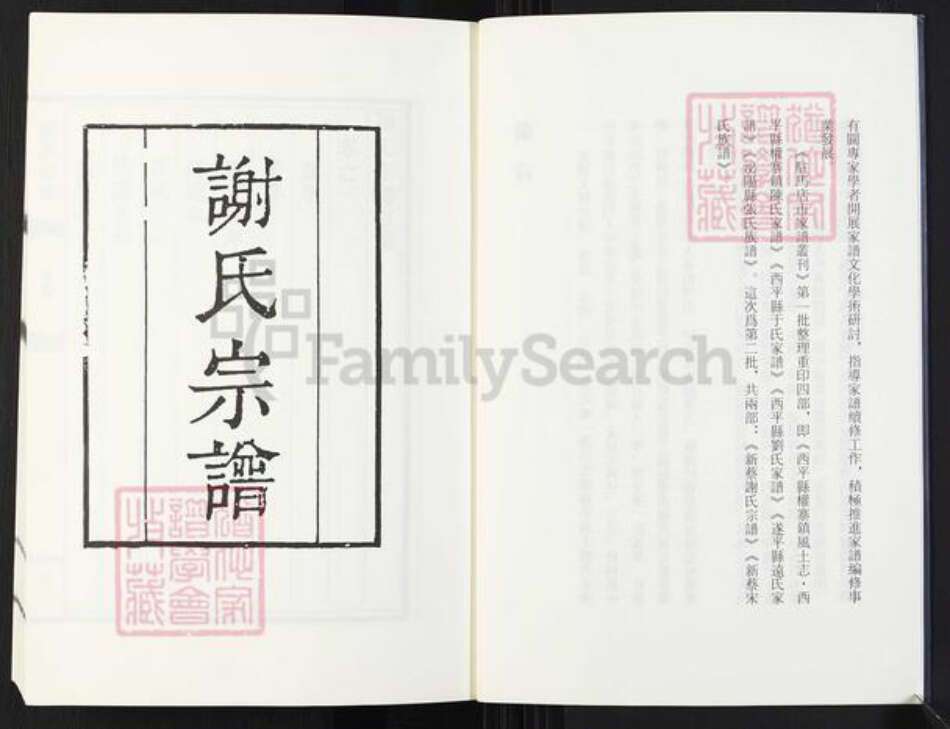 有關專家學者開展家譜文化學術研討，指導家譜續修工作，積極推進家譜編修事
業發展。
《駐馬店市家譜叢刊》第一批整理重印四部，即《西平縣權寨鎮風土志·西
平縣權寨鎮陳氏家譜》《西平縣于氏家譜》《西平縣劉氏家譜》《遂平縣遠氏家
譜》《汝陽縣張氏族譜》。這次爲第二批，共兩部：《新蔡謝氏宗譜》《新蔡宋
氏族譜》
謝氏宗譜
FamilySearch